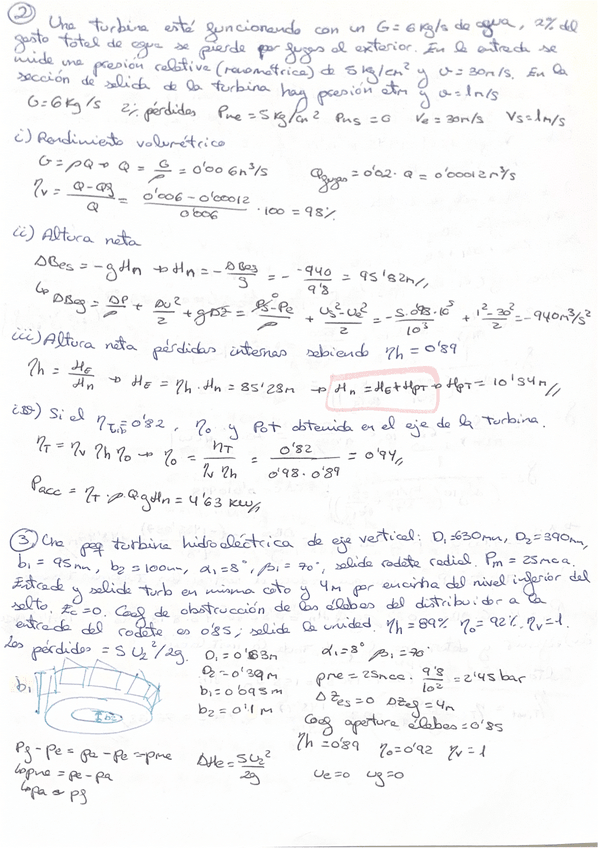 ② Una turbina está funcionando con un G = 6 kg/s de agua, 2% del
gasto total de agua se pierde por fugas al exterior. En la entrada se
mide una presión relativa (manométrica) de 5 kg/cm² y v = 30 m/s. En la
sección de salida de la turbina hay presión atm y v = 1 m/s
G = 6 kg/s 2% pérdidas Pme = 5 kg/cm² Pms = 0 Ve = 30 m/s Vs = 1 m/s
i) Rendimiento volumétrico
G = ρQ → Q = G/ρ = 0'006 m³/s Qfugas = 0'02 · Q = 0'00012 m³/s
ηv = (Q - Qf)/Q = (0'006 - 0'00012)/0'006 · 100 = 98%
ii) Altura neta
ΔBes = -gHn → Hn = - ΔBes/g = - -940/9'8 = 95'82 m//
↳ ΔBes = ΔP/ρ + Δv²/2 + gΔz = (Ps - Pe)/ρ + (Vs² - Ve²)/2 = -5·098·10⁵/10³ + (1² - 30²)/2 = -940 m²/s²
iii) Altura neta pérdidas internas sabiendo ηh = 0'89
ηh = HE/Hn → HE = ηh · Hn = 85'28 m → Hn = HE + HPT → HPT = 10'54 m//
iv) Si el ηT = 0'82, ηo y Pot obtenida en el eje de la turbina.
ηT = ηv ηh ηo → ηo = ηT/(ηv ηh) = 0'82/(0'98 · 0'89) = 0'94//
Pacc = ηT · ρ · Q g Hn = 4'63 kW//
③ Una peq turbina hidroeléctrica de eje vertical: D₁ = 630 mm, D₂ = 390 mm,
b₁ = 95 mm, b₂ = 100 mm, α₁ = 8°, β₁ = 70°, salida rodete radial. Pm = 25 mca.
Entrada y salida turb en misma cota y 4 m por encima del nivel inferior del
salto. Ec = 0. Coef de obstrucción de los álabes del distribuidor a la
entrada del rodete es 0'85; salida la unidad. ηh = 89% ηo = 92% ηv = 1.
Las pérdidas = 5 U₂²/2g.
D₁ = 0'63 m α₁ = 8° β₁ = 70°
D₂ = 0'39 m pme = 25 mca · 9'8/10² = 2'45 bar
b₁ b₁ = 0'095 m Δzes = 0 Δzeg = 4 m
b₂ = 0'1 m Coef apertura álabes = 0'85
ηh = 0'89 ηo = 0'92 ηv = 1
Pg - Pe = pa - pe = -pme ΔHe = 5U₂²/2g ve = 0 vg = 0
↳ pme = pe - pa
↳ pa = pg